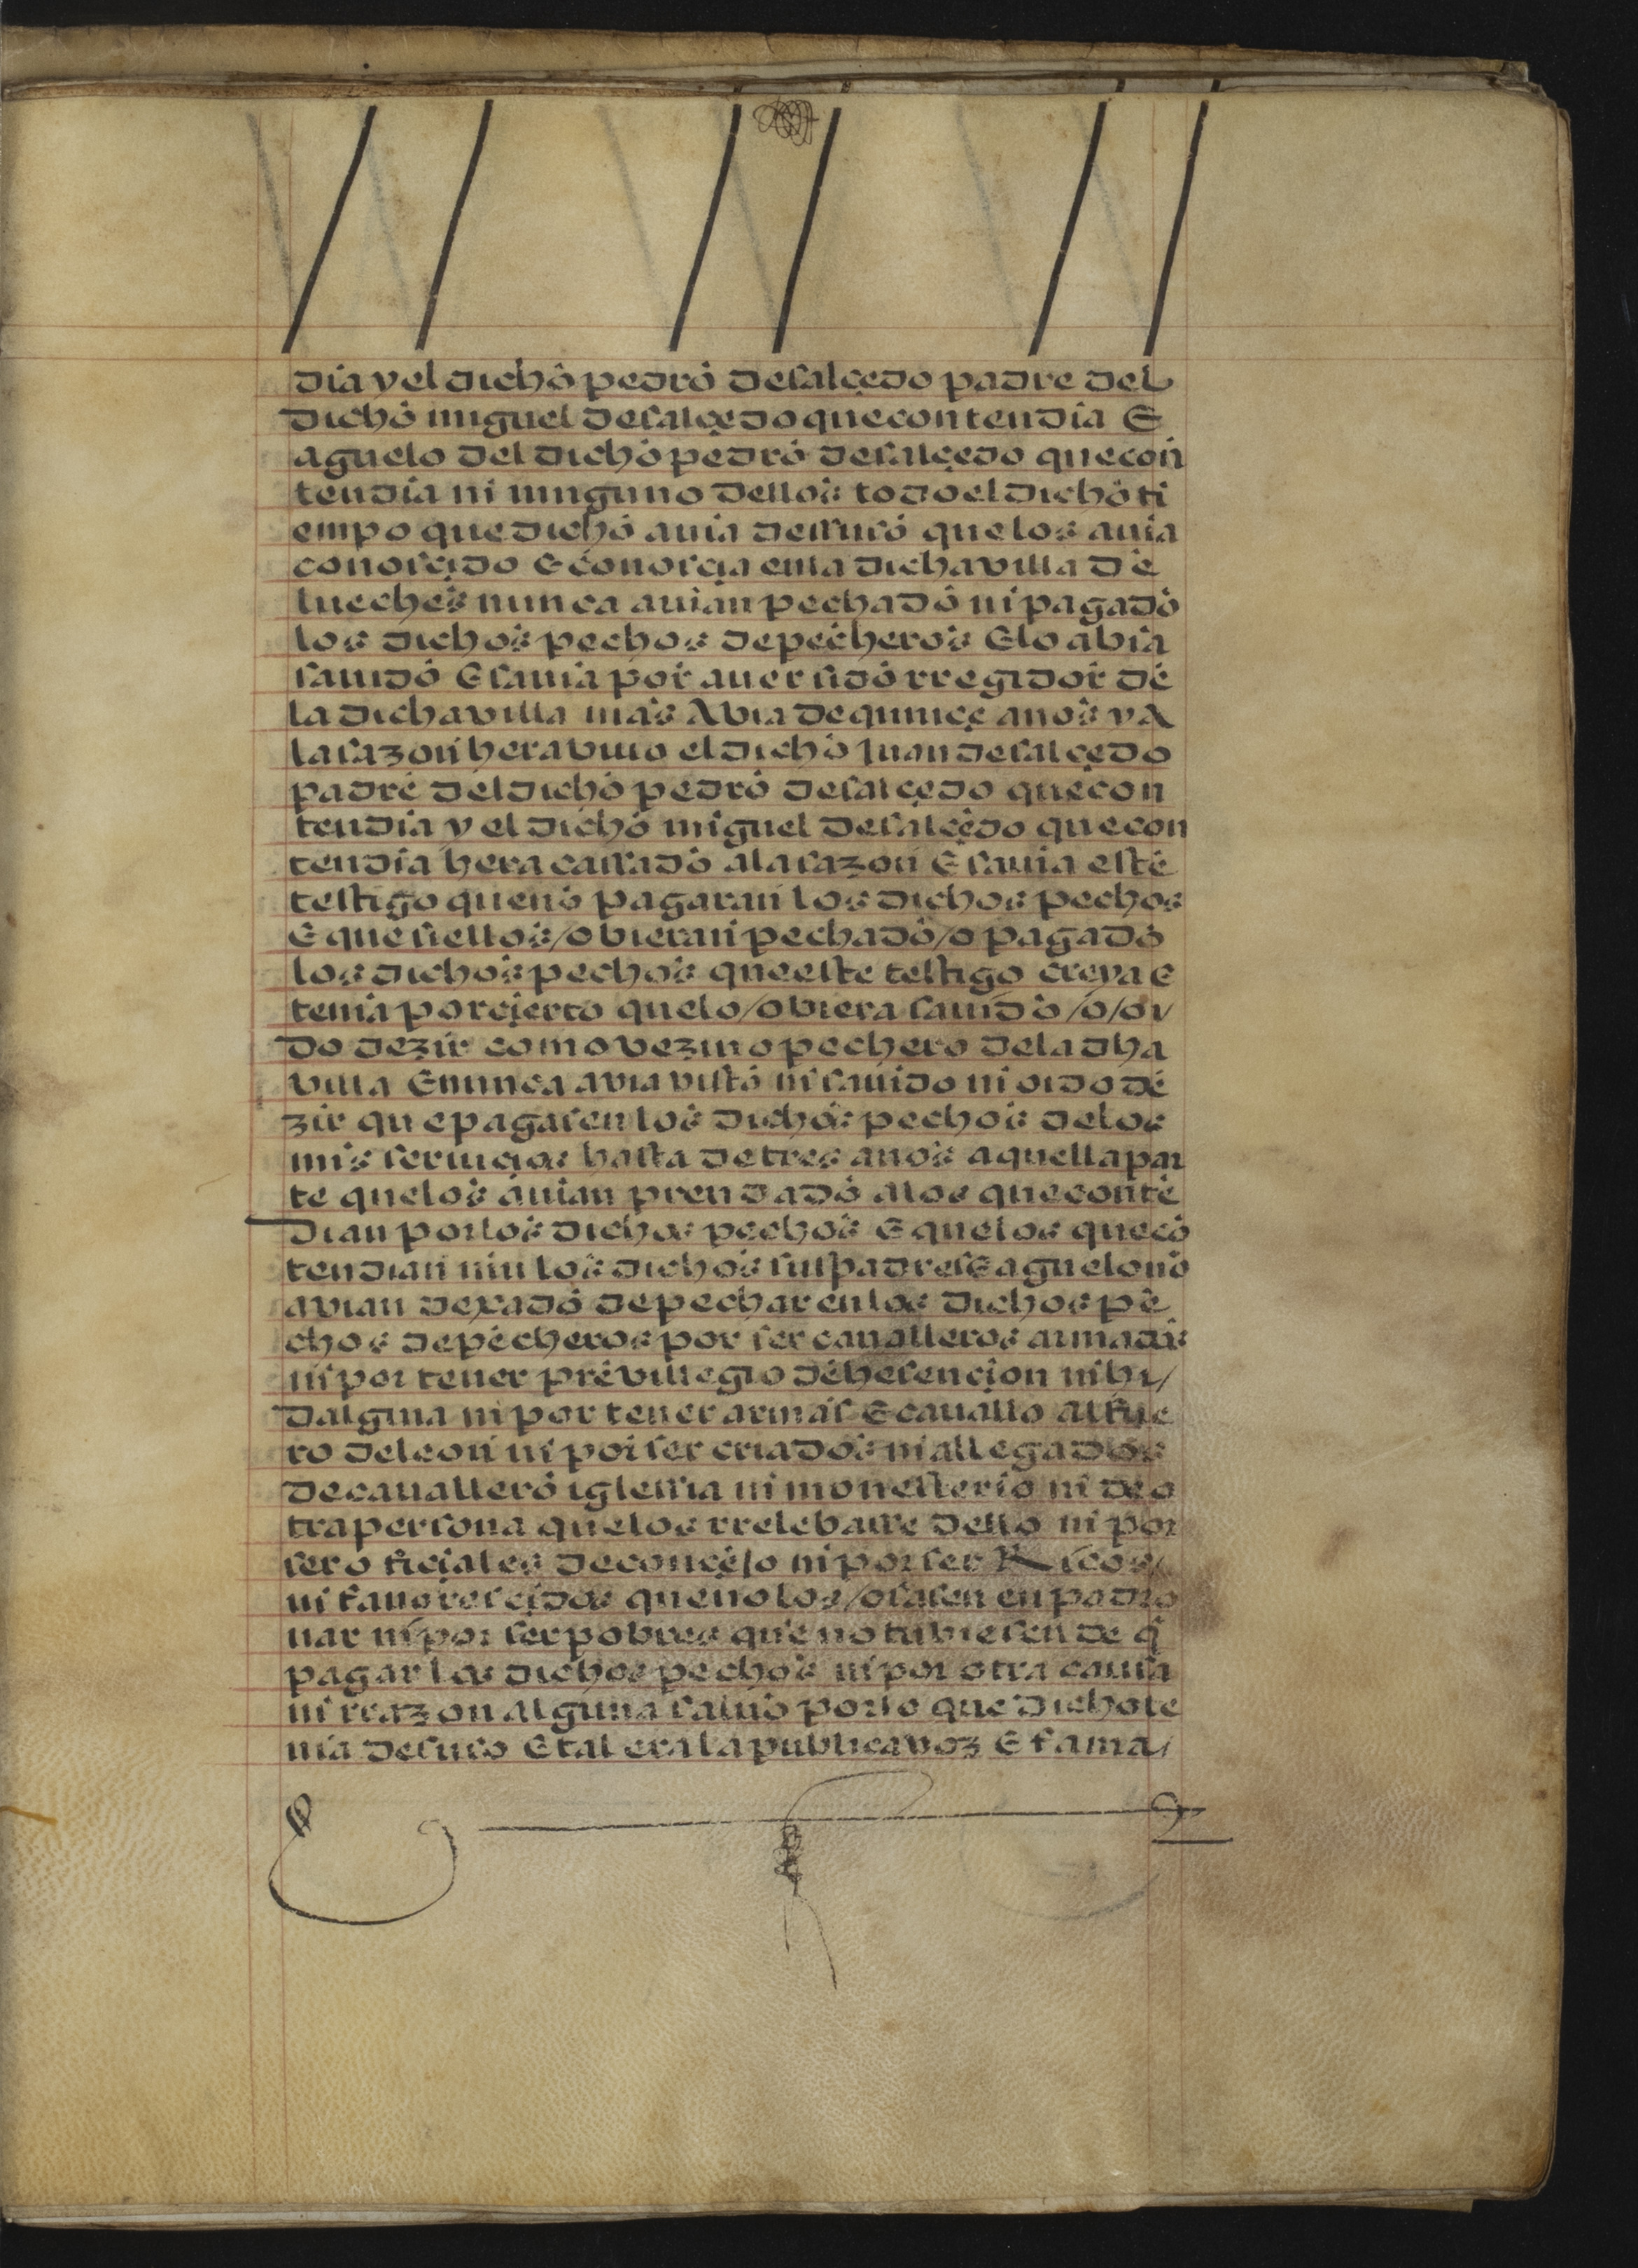 dia y el dicho pedro de salçedo padre del
dicho miguel de salçedo que contendia E
aguelo del dicho pedro de salçedo que con
tendia ni ninguno dellos todo el dicho ti
empo que dicho auia dessuso que los auia
conosçido E conosçia en la dicha villa de
lueches nunca auian pechado ni pagado
los dichos pechos de pecheros E lo abia
sauido E sauia por auer sido rregidor de
la dicha villa mas Abia de quinçe anos y A
la sazon hera biuo el dicho Juan de salçedo
padre del dicho pedro de salçedo que con
tendia y el dicho miguel de salçedo que con
tendia hera cassado a la sazon E sauia este
testigo que no pagaran los dichos pechos
E que si ellos / obieran pechado / o pagado
los dichos pechos que este testigo creya e
tenia por çierto que lo / obiera sauido / o / oy
do dezir como vezino pechero de la dha
villa E nunca avia visto ni sauido ni oido de
zir que pagasen los dichos pechos de los
mis seruiçios hasta de tres anos a quella par
te que los auian prendado a los que conte
dian por los dichos pechos E que los que co
tendian nin los dichos sus padres E aguelo no
avian dexado de pechar en los dichos pe
chos de pecheros por ser caualleros armados
ni por tener previllegio de hesençion ni hi /
dalguia ni por tener armas E cauallo al fue
ro de leon ni por ser criados ni allegados
de cauallero iglessia ni monesterio ni de o
tra persona que los rrelebasse dello ni por
ser ofiçiales de conçejo ni por ser Ricos /
ni fauoresçidos que no los / osasen enpadro
nar ni por ser pobres que no tubiesen de q
pagar los dichos pechos ni por otra causa
ni rrazon alguna saluo por lo que dicho te
nia desuso E tal era la publica voz E fama /